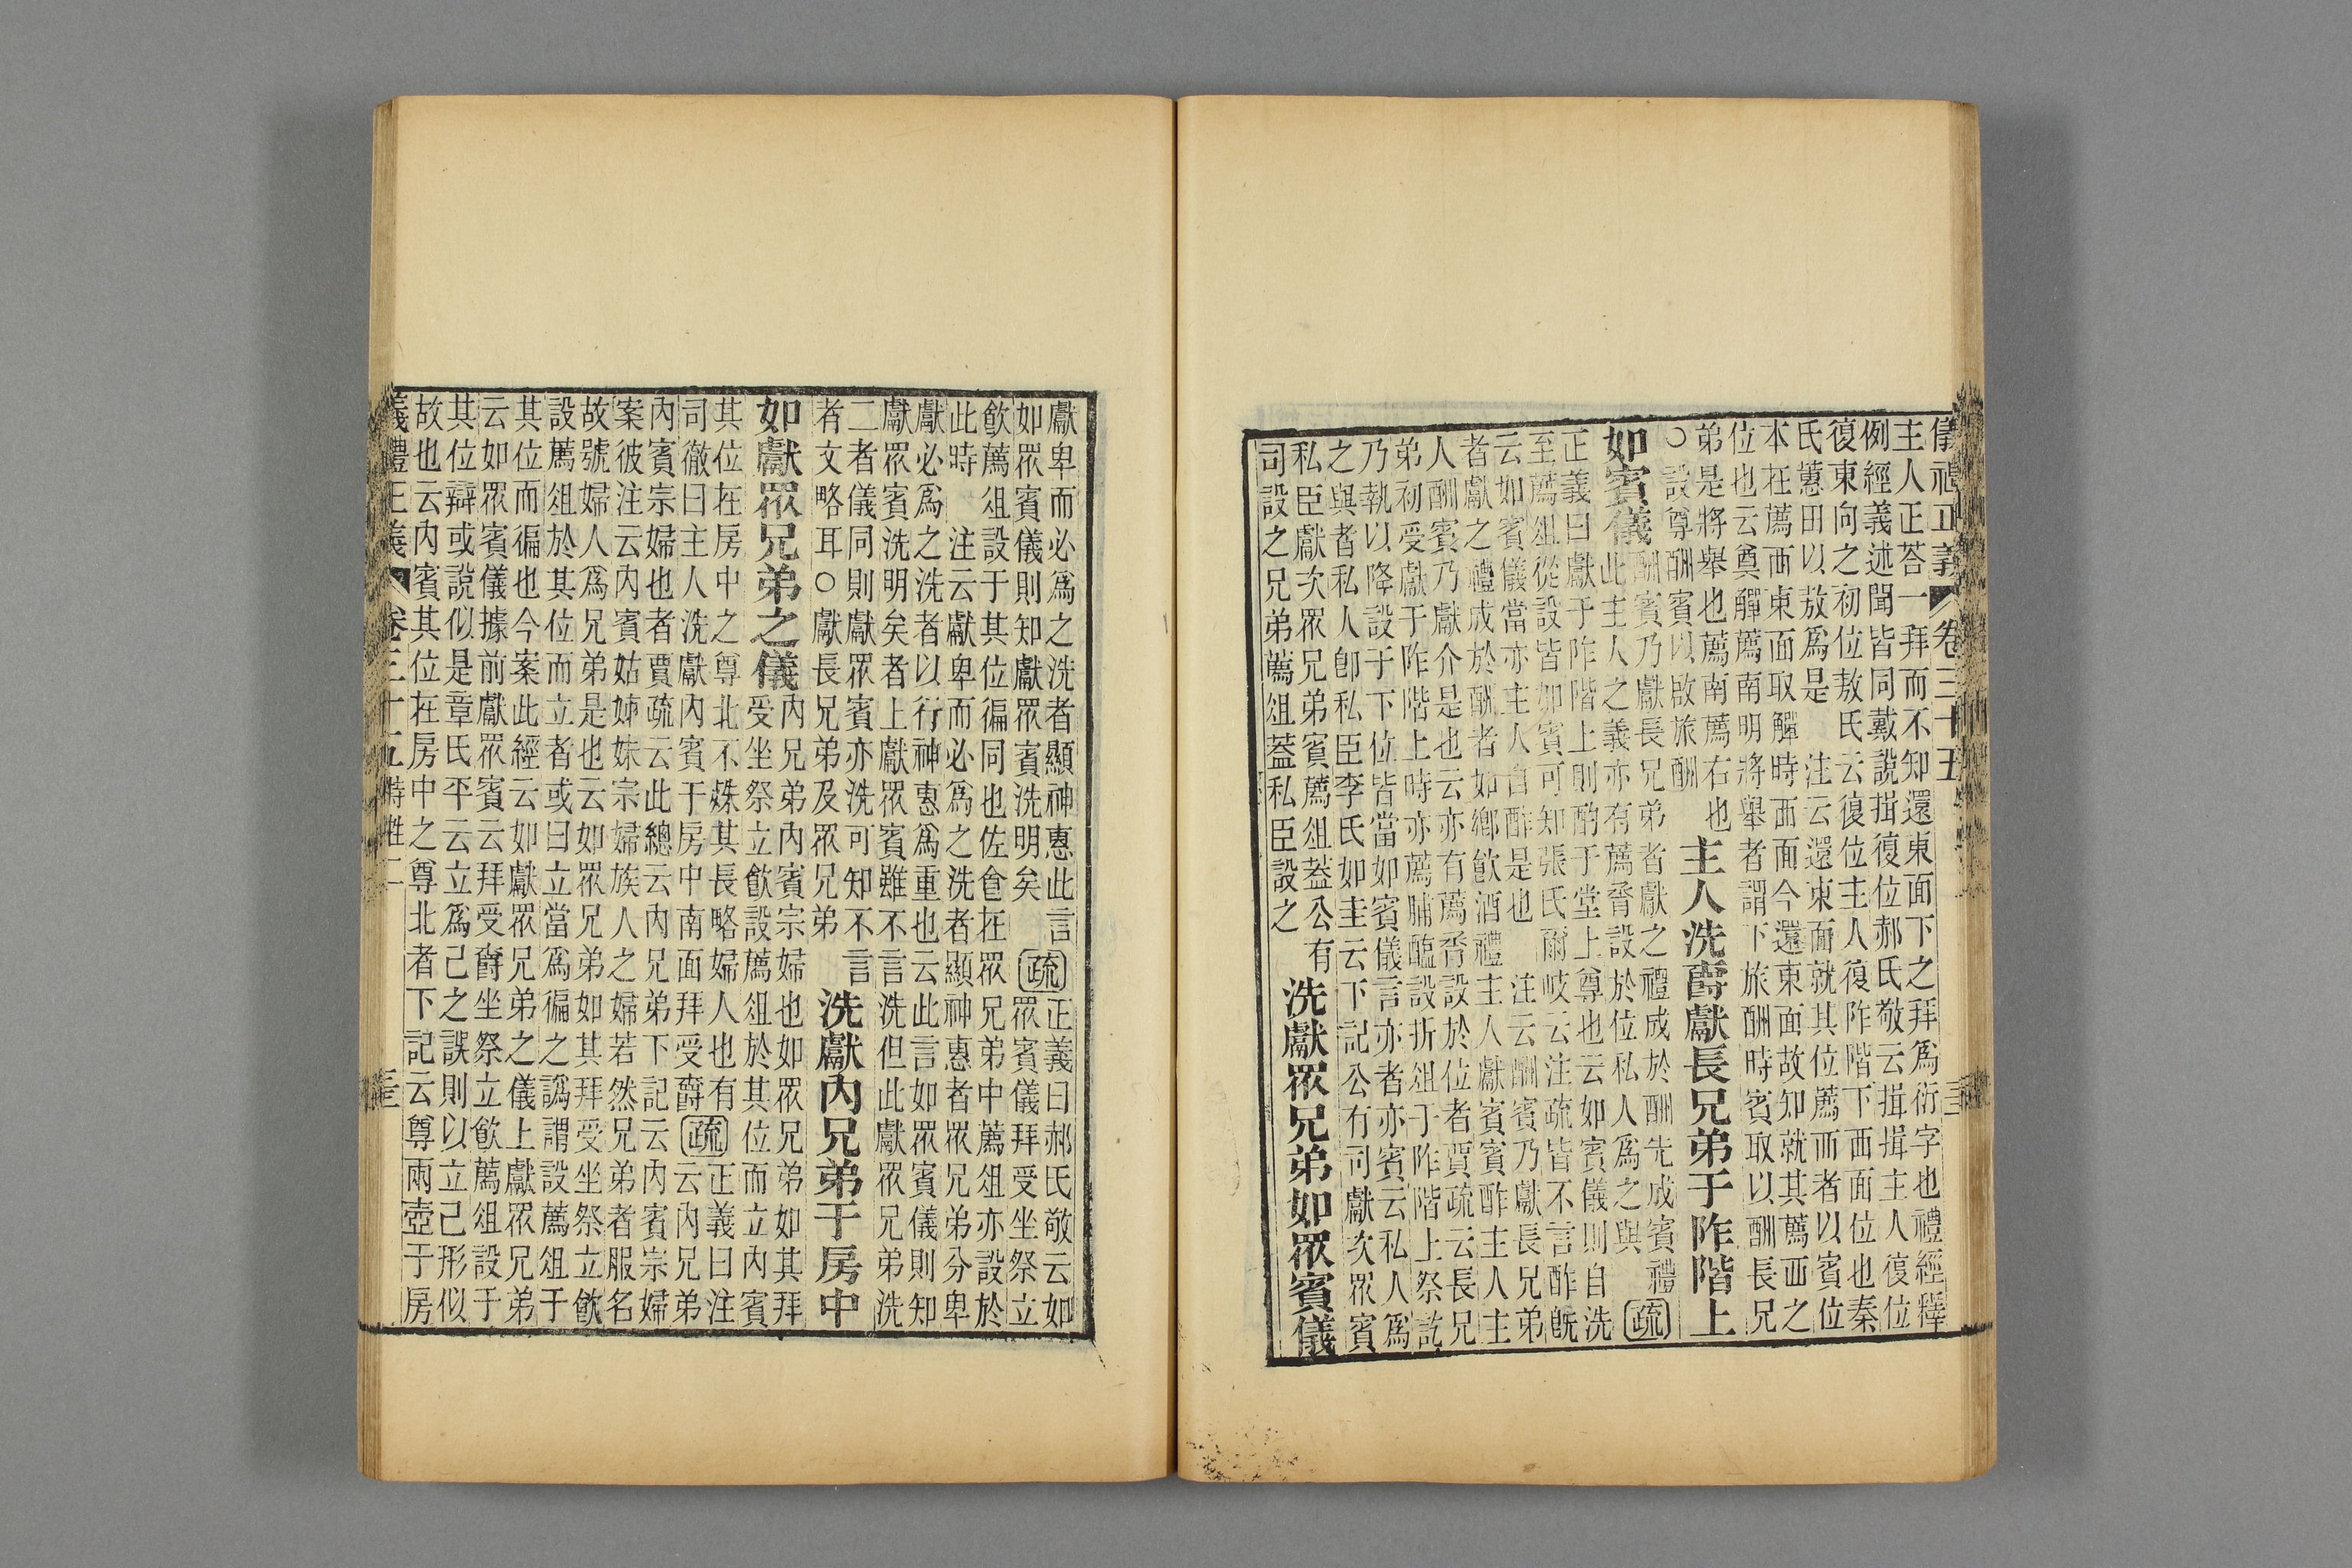 儀禮正義 卷三十五
主人正荅一拜而不知還東面下之拜爲衍字也禮經釋
例經義述聞皆同戴說揖復位郝氏敬云揖揖主人復位
復東向之初位敖氏云復位主人復阼階下西面位也秦
氏蕙田以敖爲是 注云還東面就其位薦西者以賓位
本在薦西東面取觶時西面今還東面故知就其薦西之
位也云奠觶薦南明將舉者謂下旅酬時賓取以酬長兄
弟是將舉也薦南薦右也
○設尊酬賓以啟旅酬
主人洗爵獻長兄弟于阼階上
如賓儀
酬賓乃獻長兄弟者獻之禮成於酬先成賓禮
此主人之義亦有薦脀設於位私人爲之與
疏
正義曰獻于阼階上則酌于堂上尊也云如賓儀則自洗
至薦俎從設皆如賓可知張氏爾岐云注疏皆不言酢旣
云如賓儀當亦主人自酢是也 注云酬賓乃獻長兄弟
者獻之禮成於酬者如鄉飲酒禮主人獻賓賓酢主人主
人酬賓乃獻介是也云亦有薦脀設於位者賈疏云長兄
弟初受獻于阼階上時亦薦脯醢設折俎于阼階上祭訖
乃執以降設于下位皆當如賓儀言亦者亦賓云私人爲
之與者私人卽私臣李氏如圭云下記公有司獻次眾賓
私臣獻次眾兄弟賓薦俎蓋公有
司設之兄弟薦俎蓋私臣設之
洗獻眾兄弟如眾賓儀
獻卑而必爲之洗者顯神惠此言
如眾賓儀則知獻眾賓洗明矣
疏
正義曰郝氏敬云如
眾賓儀拜受坐祭立
飲薦俎設于其位徧同也佐食在眾兄弟中薦俎亦設於
此時 注云獻卑而必爲之洗者顯神惠者眾兄弟分卑
獻必爲之洗者以行神惠爲重也云此言如眾賓儀則知
獻眾賓洗明矣者上獻眾賓雖不言洗但此獻眾兄弟洗
二者儀同則獻眾賓亦洗可知不言
者文略耳○獻長兄弟及眾兄弟
洗獻內兄弟于房中
如獻眾兄弟之儀
內兄弟內賓宗婦也如眾兄弟如其拜
受坐祭立飲設薦俎於其位而立內賓
其位在房中之尊北不殊其長略婦人也有
司徹曰主人洗獻內賓于房中南面拜受爵
疏
正義曰注
云內兄弟
內賓宗婦也者賈疏云此總云內兄弟下記云內賓宗婦
案彼注云內賓姑姊妹宗婦族人之婦若然兄弟者服名
故號婦人爲兄弟是也云如眾兄弟如其拜受坐祭立飲
設薦俎於其位而立者或曰立當爲徧之譌謂設薦俎于
其位而徧也今案此經云如獻眾兄弟之儀上獻眾兄弟
云如眾賓儀據前獻眾賓云拜受爵坐祭立飲薦俎設于
其位辯或說似是章氏平云立爲己之誤則以立己形似
故也云內賓其位在房中之尊北者下記云尊兩壺于房
禮正義 卷三十五 特牲二